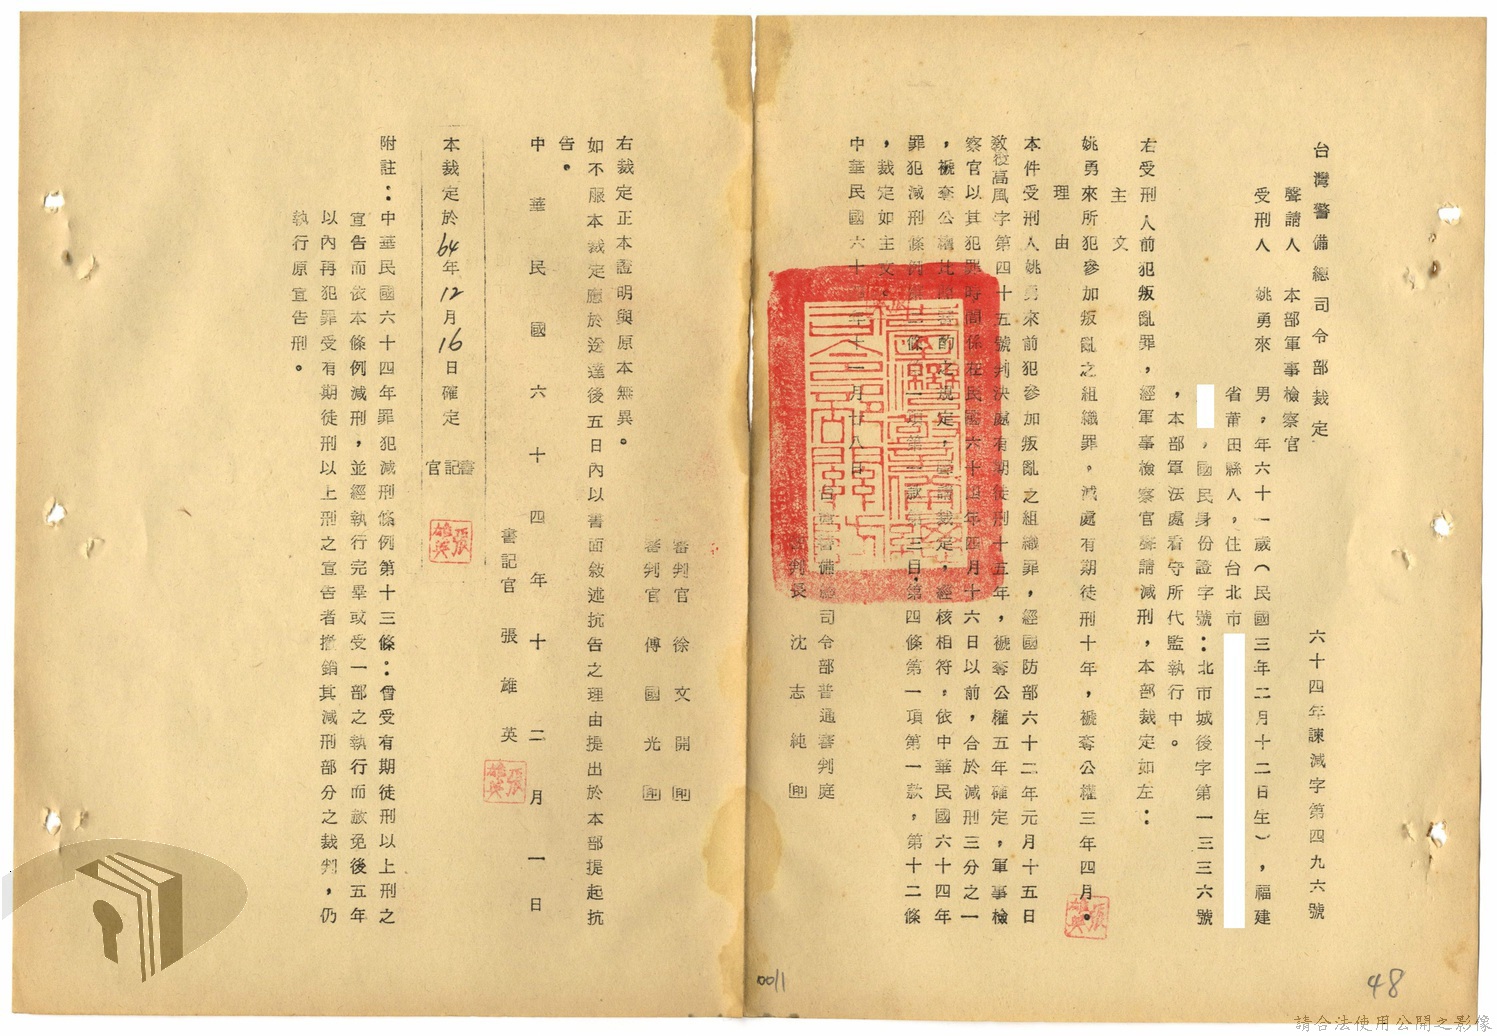 台灣警備總司令部裁定
六十四年諫減字第四九六號
聲請人 本部軍事檢察官
受刑人 姚勇來 男,年六十一歲(民國三年二月十二日生),福建
省莆田縣人,住台北市
,國民身份證字號:北市城後字第一三三六號
,本部軍法處看守所代監執行中。
右受刑人前犯叛亂罪,經軍事檢察官聲請減刑,本部裁定如左:
主文
姚勇來所犯參加叛亂之組織罪。減處有期徒刑十年,褫奪公權三年四月。
理由
本件受刑人姚勇來前犯參加叛亂之組織罪,經國防部六十二年元月十五日
風字第四十五號判決處有期徒刑十五年,褫奪公權五年確定,軍事檢
察官以其犯罪時間係在民國六十四年四月十六日以前,合於減刑三分之一
,褫奪公權比例審酌之規定,聲請裁定,經核相符。依中華民國六十四年
罪犯減刑條例第二條第一項第一款第三目,第四條第一項第一款,第十二條
,裁定如主文。
中華民國六十四年十一月廿八日
台灣警備總司令部普通審判庭
審判長 沈志純 印
審判官 徐文開 印
審判官 傅國光 印
右裁定正本證明與原本無異。
如不服本裁定應於送達後五日內以書面敘述抗告之理由提出於本部提起抗
告。
書記官 張雄英
張雄英
中華民國六十四年十二月一日
本裁定於64年12月16日確定 書記官
張雄英
附註:中華民國六十四年罪犯減刑條例第十三條:曾受有期徒刑以上刑之
宣告而依本條例減刑,並經執行完畢或受一部之執行而赦免後五年
以內再犯罪受有期徒刑以上刑之宣告者撤銷其減刑部分之裁判,仍
執行原宣告刑。
張雄英
0011
48
請合法使用公開之影像